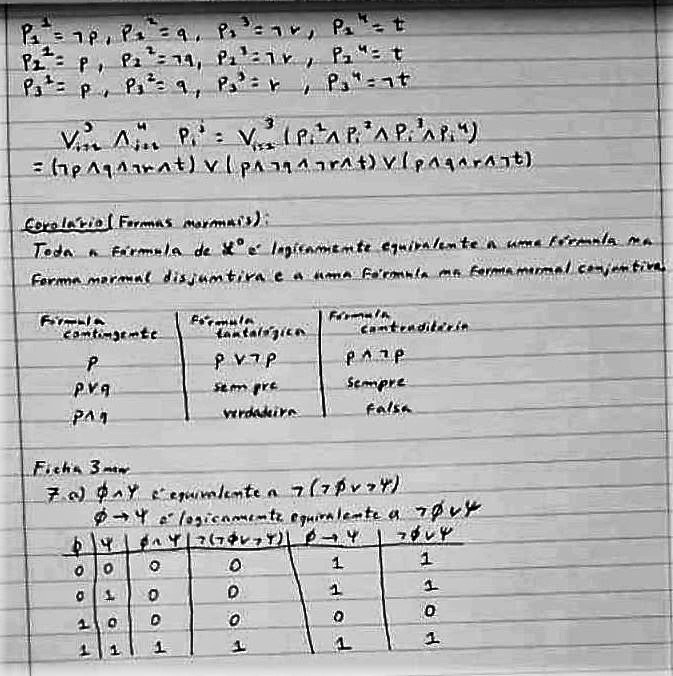 P₁¹ = ¬p, P₁² = q, P₁³ = ¬r, P₁⁴ = t
P₂¹ = p, P₂² = ¬q, P₂³ = ¬r, P₂⁴ = t
P₃¹ = p, P₃² = q, P₃³ = r, P₃⁴ = ¬t
V³ᵢ₌₁ Λ⁴ⱼ₌₁ Pᵢʲ = V³ᵢ₌₁ (Pᵢ¹ ∧ Pᵢ² ∧ Pᵢ³ ∧ Pᵢ⁴)
= (¬p∧q∧¬r∧t) ∨ (p∧¬q∧¬r∧t) ∨ (p∧q∧r∧¬t)
Corolário (Formas normais):
Toda a fórmula de ℒ⁰ é logicamente equivalente a uma fórmula na
forma normal disjuntiva e a uma fórmula na forma normal conjuntiva.
Fórmula contingente | Fórmula tautológica | Fórmula contraditória
p | p ∨ ¬p | p ∧ ¬p
p∨q | sempre | sempre
p∧q | verdadeira | falsa
Ficha 3
7 a) ϕ∧ψ é equivalente a ¬(¬ϕ∨¬ψ)
ϕ→ψ é logicamente equivalente a ¬ϕ∨ψ
ϕ | ψ | ϕ∧ψ | ¬(¬ϕ∨¬ψ) | ϕ→ψ | ¬ϕ∨ψ
0 | 0 | 0 | 0 | 1 | 1
0 | 1 | 0 | 0 | 1 | 1
1 | 0 | 0 | 0 | 0 | 0
1 | 1 | 1 | 1 | 1 | 1